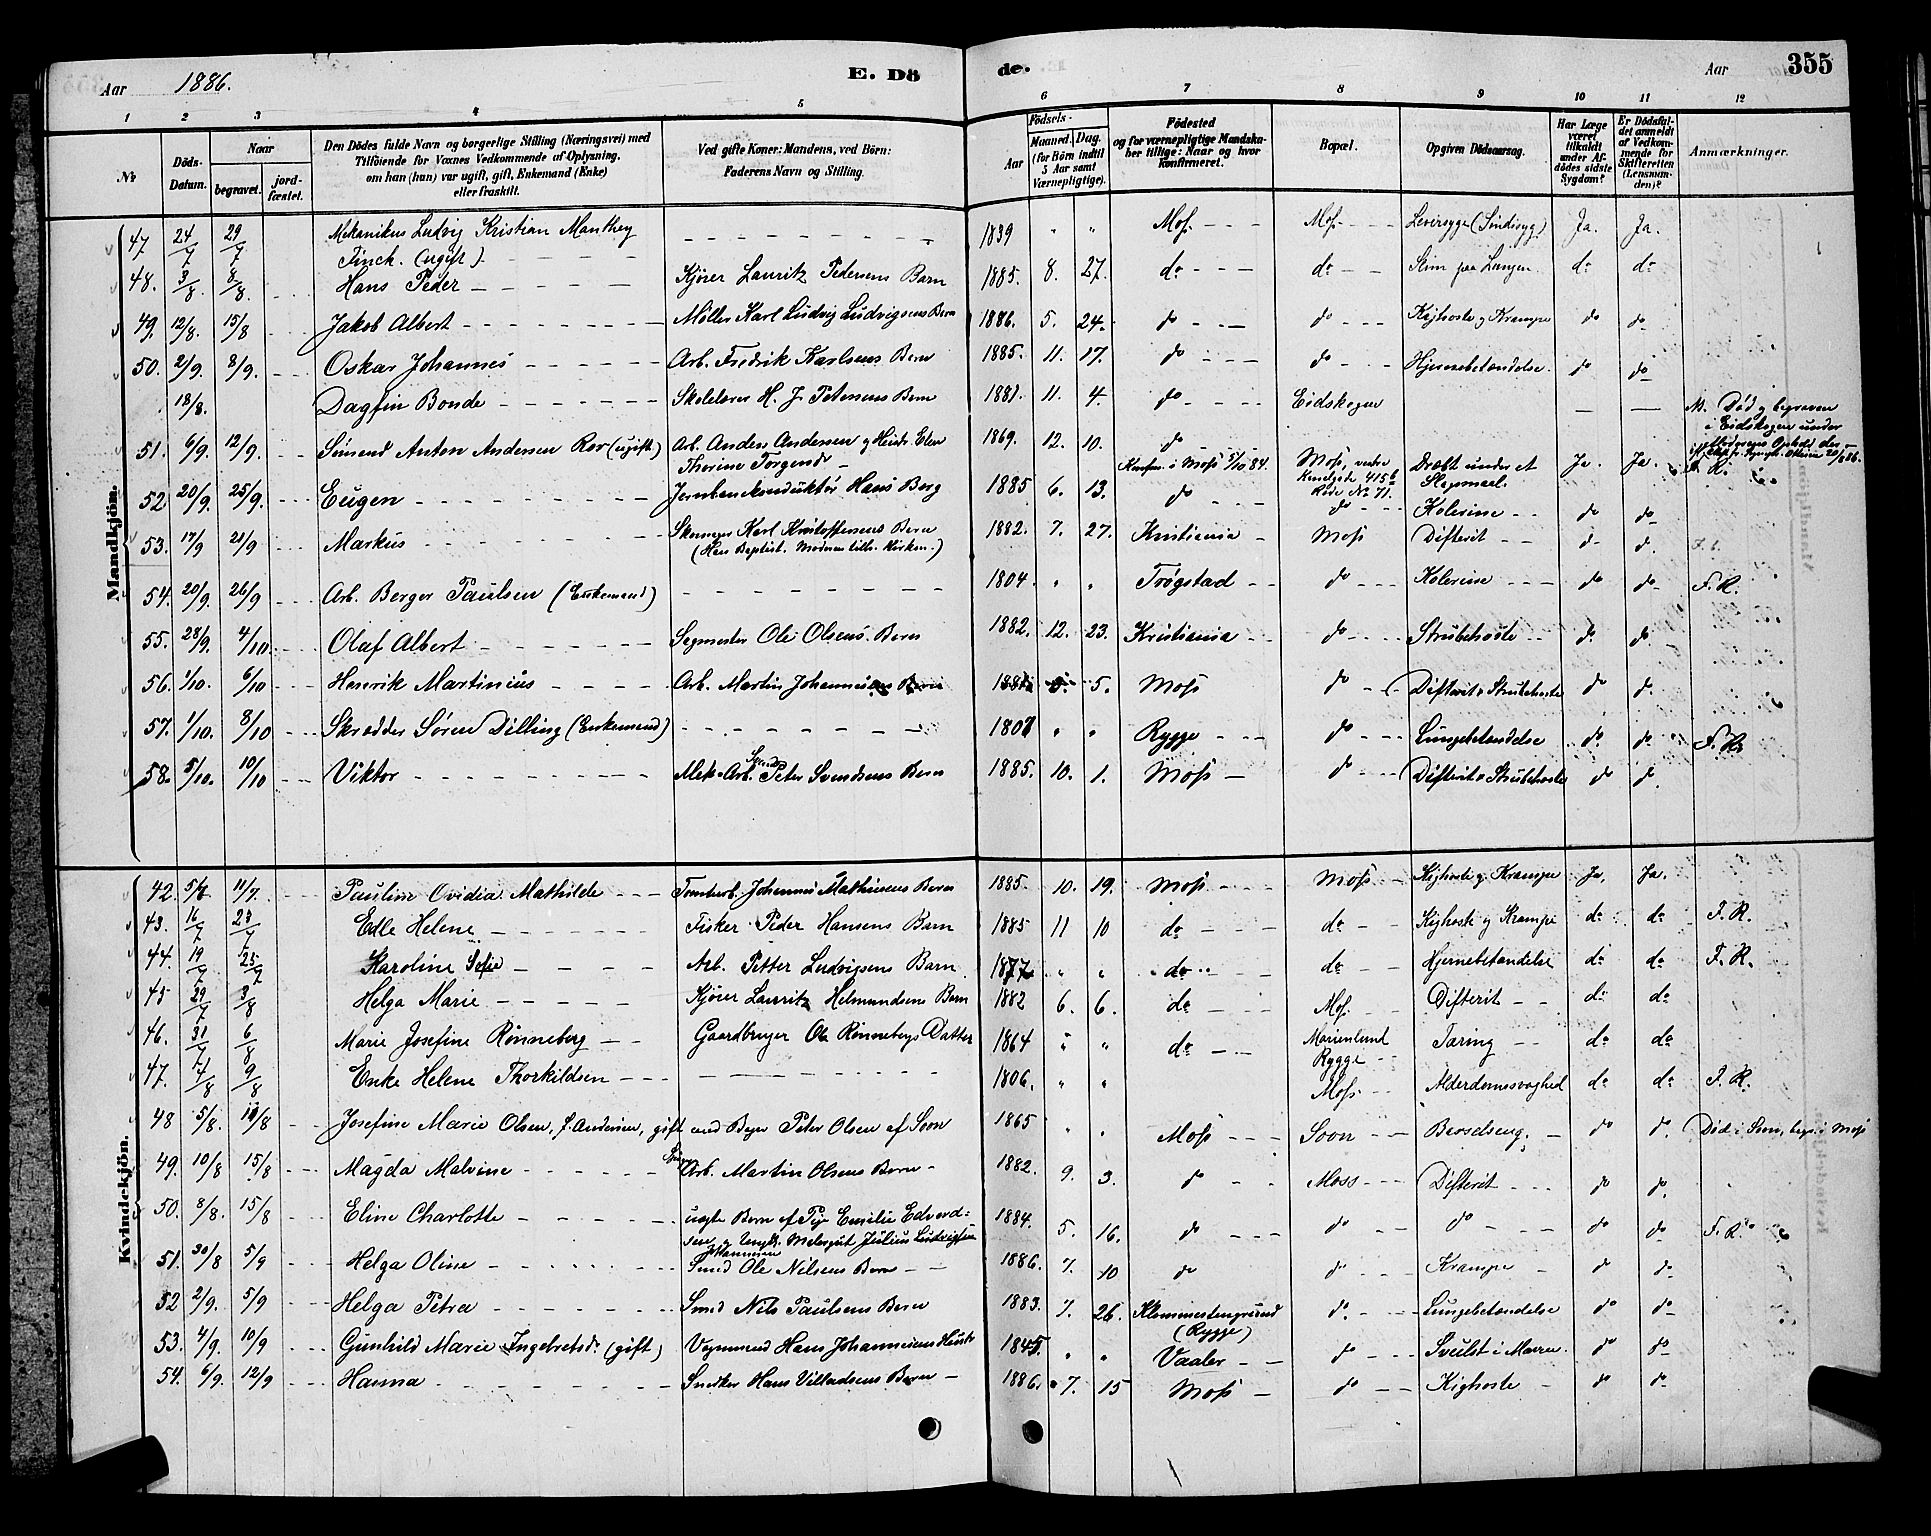 Aar 1886. E. Dö
de. Aar 355
1 2 3 4 5 6 7 8 9 10 11 12
No. Döds-Datum. Naar begravet. jordfæstet. Den Dödes fulde Navn og borgerlige Stilling (Næringsvei) med Tilföiende for Voxnes Vedkommende af Oplysning, om han (hun) var ugift, gift, Enkemand (Enke) eller fraskilt. Ved gifte Koner: Mandens, ved Börn: Faderens Navn og Stilling. Födsels- Aar Maaned. Dag. (for Börn indtil 5 Aar samt Værnepligtige). Födested og for værnepligtige Mandskaber tillige: Naar og hvor konfirmeret. Bopæl. Opgiven Dödsaarsag. Har Læge været tilkaldt under Afdödes sidste Sygdom? Er Dödsfaldet anmeldt af Vedkommende for Skifteretten (Lensmanden)? Anmærkninger.
Mandkjön.
47. 24/7 29/7 Mekanikus Ludvig Kristian Manthey Finck. (ugift) 1839 " " Moss Moss Leversyge Ja. Ja.
48. 3/8. 8/8. Hans Peder Kjører Lauritz Pedersens Barn 1885. 8. 27. do do Slim paa Lungen. do do
49. 12/8. 15/8 Jakob Albert Møller Karl Ludvig Ludvigsens Barn 1886. 5. 24. do do Kighoste og Krampe do do
50. 2/9. 8/9. Oskar Johannes Arb. Fredrik Karlsens Barn 1885. 11. 17. do do Hjernebetændelse. do do
18/8. Dagfin Bonde Skolelærer H. J. Petersens Barn 1881. 11. 4. do Eidskogen — — Død og begraven i Eidskogen under Moderens Ophold der
51. 6/9. 12/9. Simend Anton Andersen Rør (ugift) Arb. Anders Andersen og Hustr. Elen Therine Torgersd. 1869. 12. 10. do Konfirm. i Moss 5/10 84. Moss, Dræbt under et Slagsmaal. Ja. Ja.
52. 20/9. 25/9. Eugen Jernbanekonduktør Hans Berg 1885 6. 13. do do Kolerine do do
53. 17/9 21/9 Markus Karl Kristoffersens Barn (Han Baptist. Moderen tilh. Kirken.) 1882. 7. 27. Kristiania Moss Difterit do do
54. 20/9. 26/9 Arb. Berger Paulsen (Enkemand) 1804. " " Trøgstad do Kolerine do do F. R.
55. 28/9. 4/10. Olaf Albert Sagmester Ole Olsens Barn 1882. 12. 23. Kristiania do Strubehoste do do
56. 1/10. 6/10 Henrik Martinius Arb. Martin Johannesens Barn 5. Moss do Difterit & Strubehoste do do
57. 1/10. 8/10 Skrædder Søren Dilling (Enkemand) " " Rygge do Lungebetændelse do do F. R.
58. 5/10. 10/10 Viktor Mek. Arb. Peter Svendsens Barn 1885. 10. 1. Moss do Difterit & Strubehoste do do
Kvindekjön.
42. 11/7. Pauline Ovidia Mathilde Johannes Mathisens Barn 1885. 10. 19. Moss Moss Kighoste og Krampe Ja. Ja.
43. 16/7 23/7 Edle Helene Fisker Peder Hansens Barn 1885 11 10 do do Kighoste og Krampe do do F. R.
44. 19/7 25/7 Karoline Sofie Arb. Petter Ludvigsens Barn 1877 " " do do Hjernebetændelse do do F. R.
45 29/7 3/8 Helga Marie Kjører Lauritz Helmundsens Barn 1882 6. 6. do Moss Difterit do do
46. 31/7 6/8 Marie Josefine Rønneberg Gaardbruger Ole Rønnebergs Datter 1864 " " do Marienlund Rygge Tæring do do
47. 4/8 9/8 Enke Helene Thorkildsen 1806. " " Moss Alderdomssvaghed do do F. R.
48 5/8. 10/8 Josefine Marie Olsen, f. Andersen, gift med Peter Olsen af Soon 1865 " " Moss Soon Barselseng. do do Død i Soon, begr. i Moss
49. 10/8 15/8 Magda Malvine Arb. Martin Olsens Barn 1882. 9. 3. do Moss Difterit do do
50. 8/8. 15/8 Eline Charlotte uægte Barn af Pige Emilie Edvardsen og Ungk. Julius Ludvigsen 1884. 5. 16. do do do do do F. R.
51. 30/8 5/9 Helga Oline Smed Ole Nilsens Barn 1886. 7. 10 do do Krampe do do
52 2/9. 5/9 Helga Petra Smed Nils Paulsens Barn 1883. 7. 26. (Rygge) do Lungebetændelse do do
53. 4/9. 10/9 Gunhild Marie Ingebretsd. (gift) Vognmand Hans Johannesens Hustr. 1845. " " Vaaler do Svulst i Maven. do do
54. 6/9. 12/9 Hanna Snedker Hans Villadsens Barn 1886. 7. 15 Moss do Kighoste do do